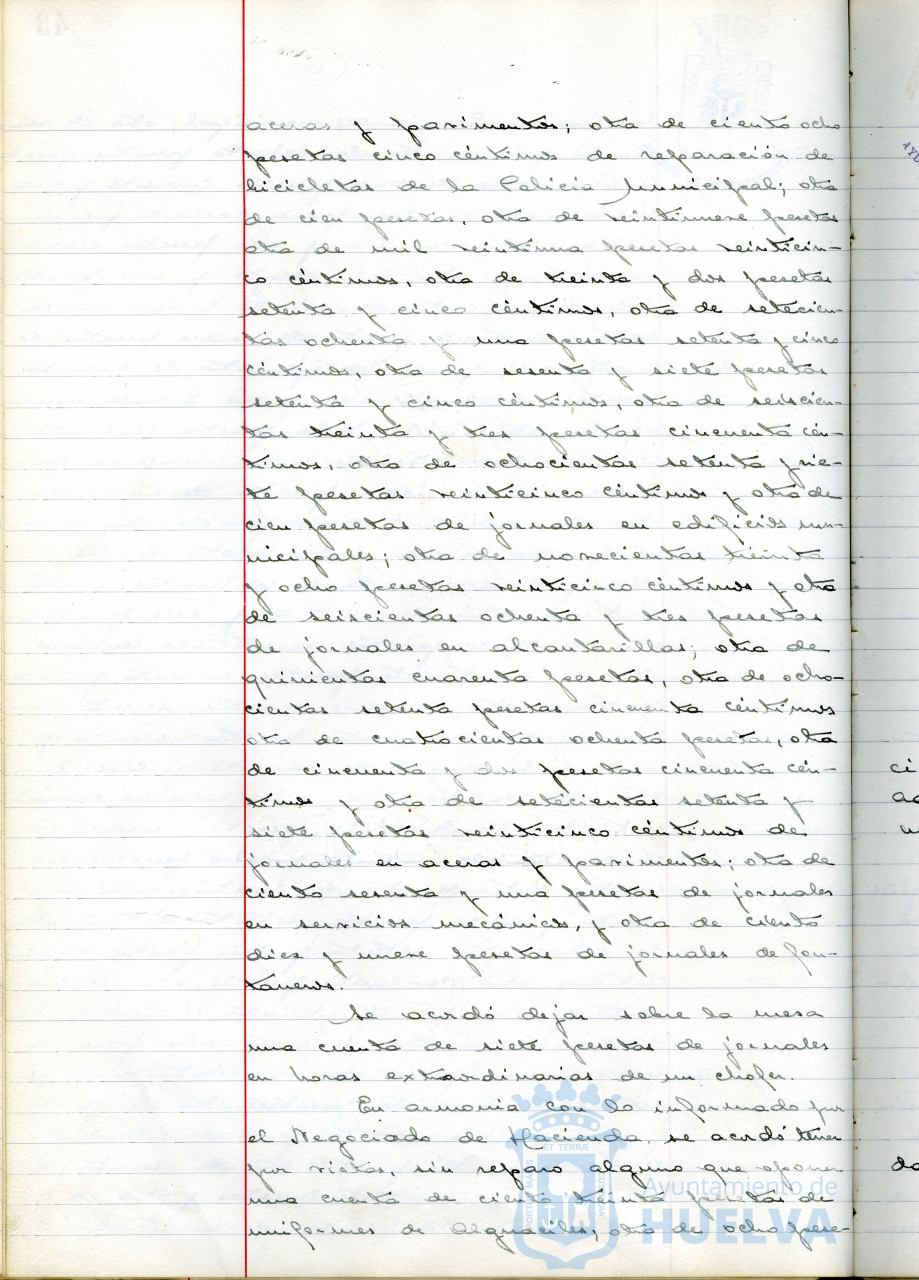 aceras y pavimentos; otra de ciento ocho
pesetas cinco céntimos de reparación de
bicicletas de la Policia Municipal; otra
de cien pesetas, otra de veintinueve pesetas
otra de mil veintiuna pesetas veinticin-
co céntimos, otra de treinta y dos pesetas
setenta y cinco céntimos, otra de setecien-
tas ochenta y una pesetas setenta y cinco
céntimos, otra de sesenta y siete pesetas
setenta y cinco céntimos, otra de seiscien-
tas treinta y tres pesetas cincuenta cén-
timos, otra de ochocientas setenta y sie-
te pesetas veinticinco céntimos y otra de
cien pesetas de jornales en edificios mu-
nicipales; otra de novecientas treinta
y ocho pesetas veinticinco céntimos y otra
de seiscientas ochenta y tres pesetas
de jornales en alcantarillas; otra de
quinientas cuarenta pesetas, otra de ocho-
cientas setenta pesetas cincuenta céntimos
otra de cuatrocientas ochenta pesetas, otra
de cincuenta y dos pesetas cincuenta cén-
timos y otra de setecientas setenta y
siete pesetas veinticinco céntimos de
jornales en aceras y pavimentos; otra de
ciento sesenta y una pesetas de jornales
en servicios mecánicos, y otra de ciento
diez y nueve pesetas de jornales de fon-
taneros.
Se acordó dejar sobre la mesa
una cuenta de siete pesetas de jornales
en horas extraordinarias de un chofer.
En armonia con lo informado por
el Negociado de Hacienda, se acordó tener
por vistas, sin reparo alguno que oponer
una cuenta de ciento treinta pesetas de
uniformes de Alguaciles; otra de ocho pese-
Ayuntamiento de
HUELVA